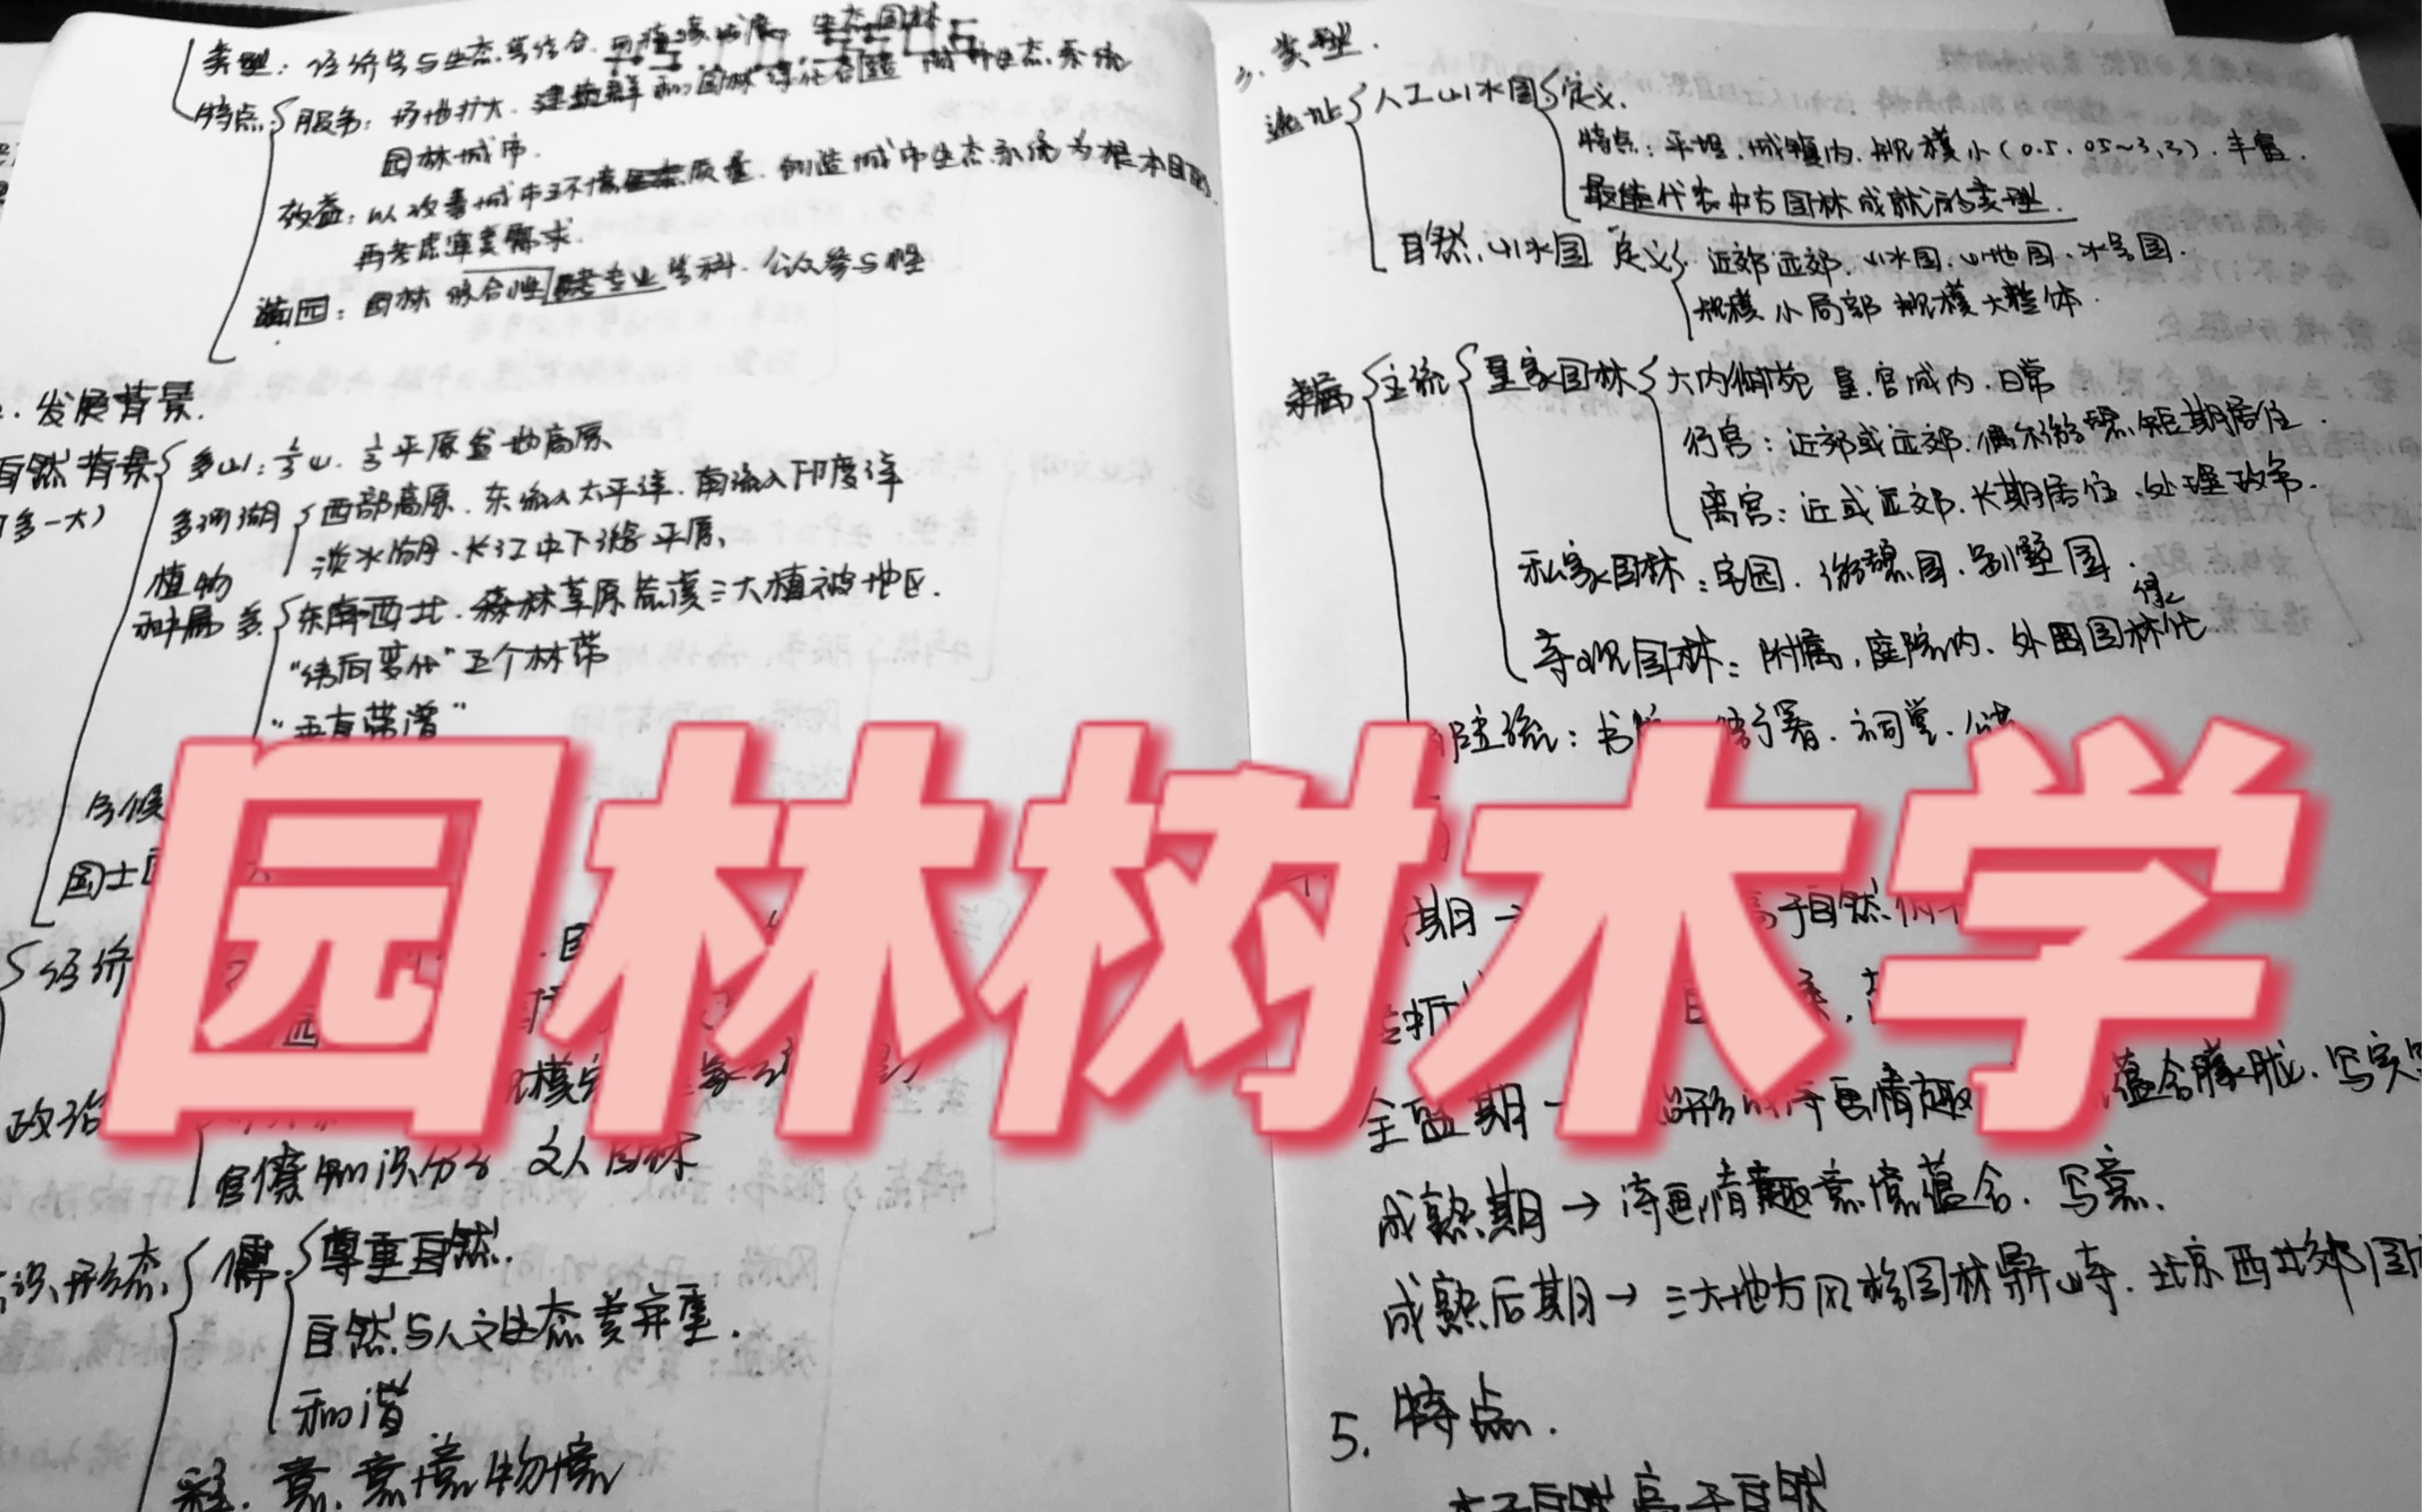 类型：经济学与生态学结合.可持续发展.生态园林
特点 服务：场地扩大.建筑群和园林绿化 城市生态系统
园林城市.
效益：以改善城市环境质量.创造城市生态系统为根本目的.
再考虑审美需求.
造园：园林综合性 专业学科.公众参与性
发展背景.
自然背景 多山：2/3山.1/3平原盆地高原
多一大）
多河湖 西部高原.东流入太平洋.南流入印度洋
淡水湖.长江中下游平原
植物种属多 东南西北.森林草原荒漠三大植被地区.
“纬向变化”五个林带
“垂直带谱”
气候
国土
经济
政治
官僚知识分子 文人园林
识形态 儒 尊重自然.
自然与人文生态美并重.
和谐
释.意.意境物境
3.类型.
选址 人工山水园 定义.
特点：平坦.城镇内.规模小（0.5.05~3,3）.丰富.
最能代表中方园林成就的类型.
自然山水园 定义 近郊远郊.山水园.山地园.水景园.
规模小局部 规模大整体.
隶属 主流 皇家园林 大内御苑 皇.宫城内.日常
行宫：近郊或远郊.偶尔游憩短期居住.
离宫：近或远郊.长期居住.处理政务.
私家园林：宅园.游憩园.别墅园.
寺观园林：附属.庭院内.外围园林绿化
非主流：书 衙署.祠堂.公共
园林树木学
期→ 高于自然
转折
全盛期 诗画情趣 蕴含朦胧.写实
成熟期→诗画情趣意境蕴含.写意.
成熟后期→三大地方风格园林鼎峙.北京西北郊园
5.特点.
本于自然高于自然